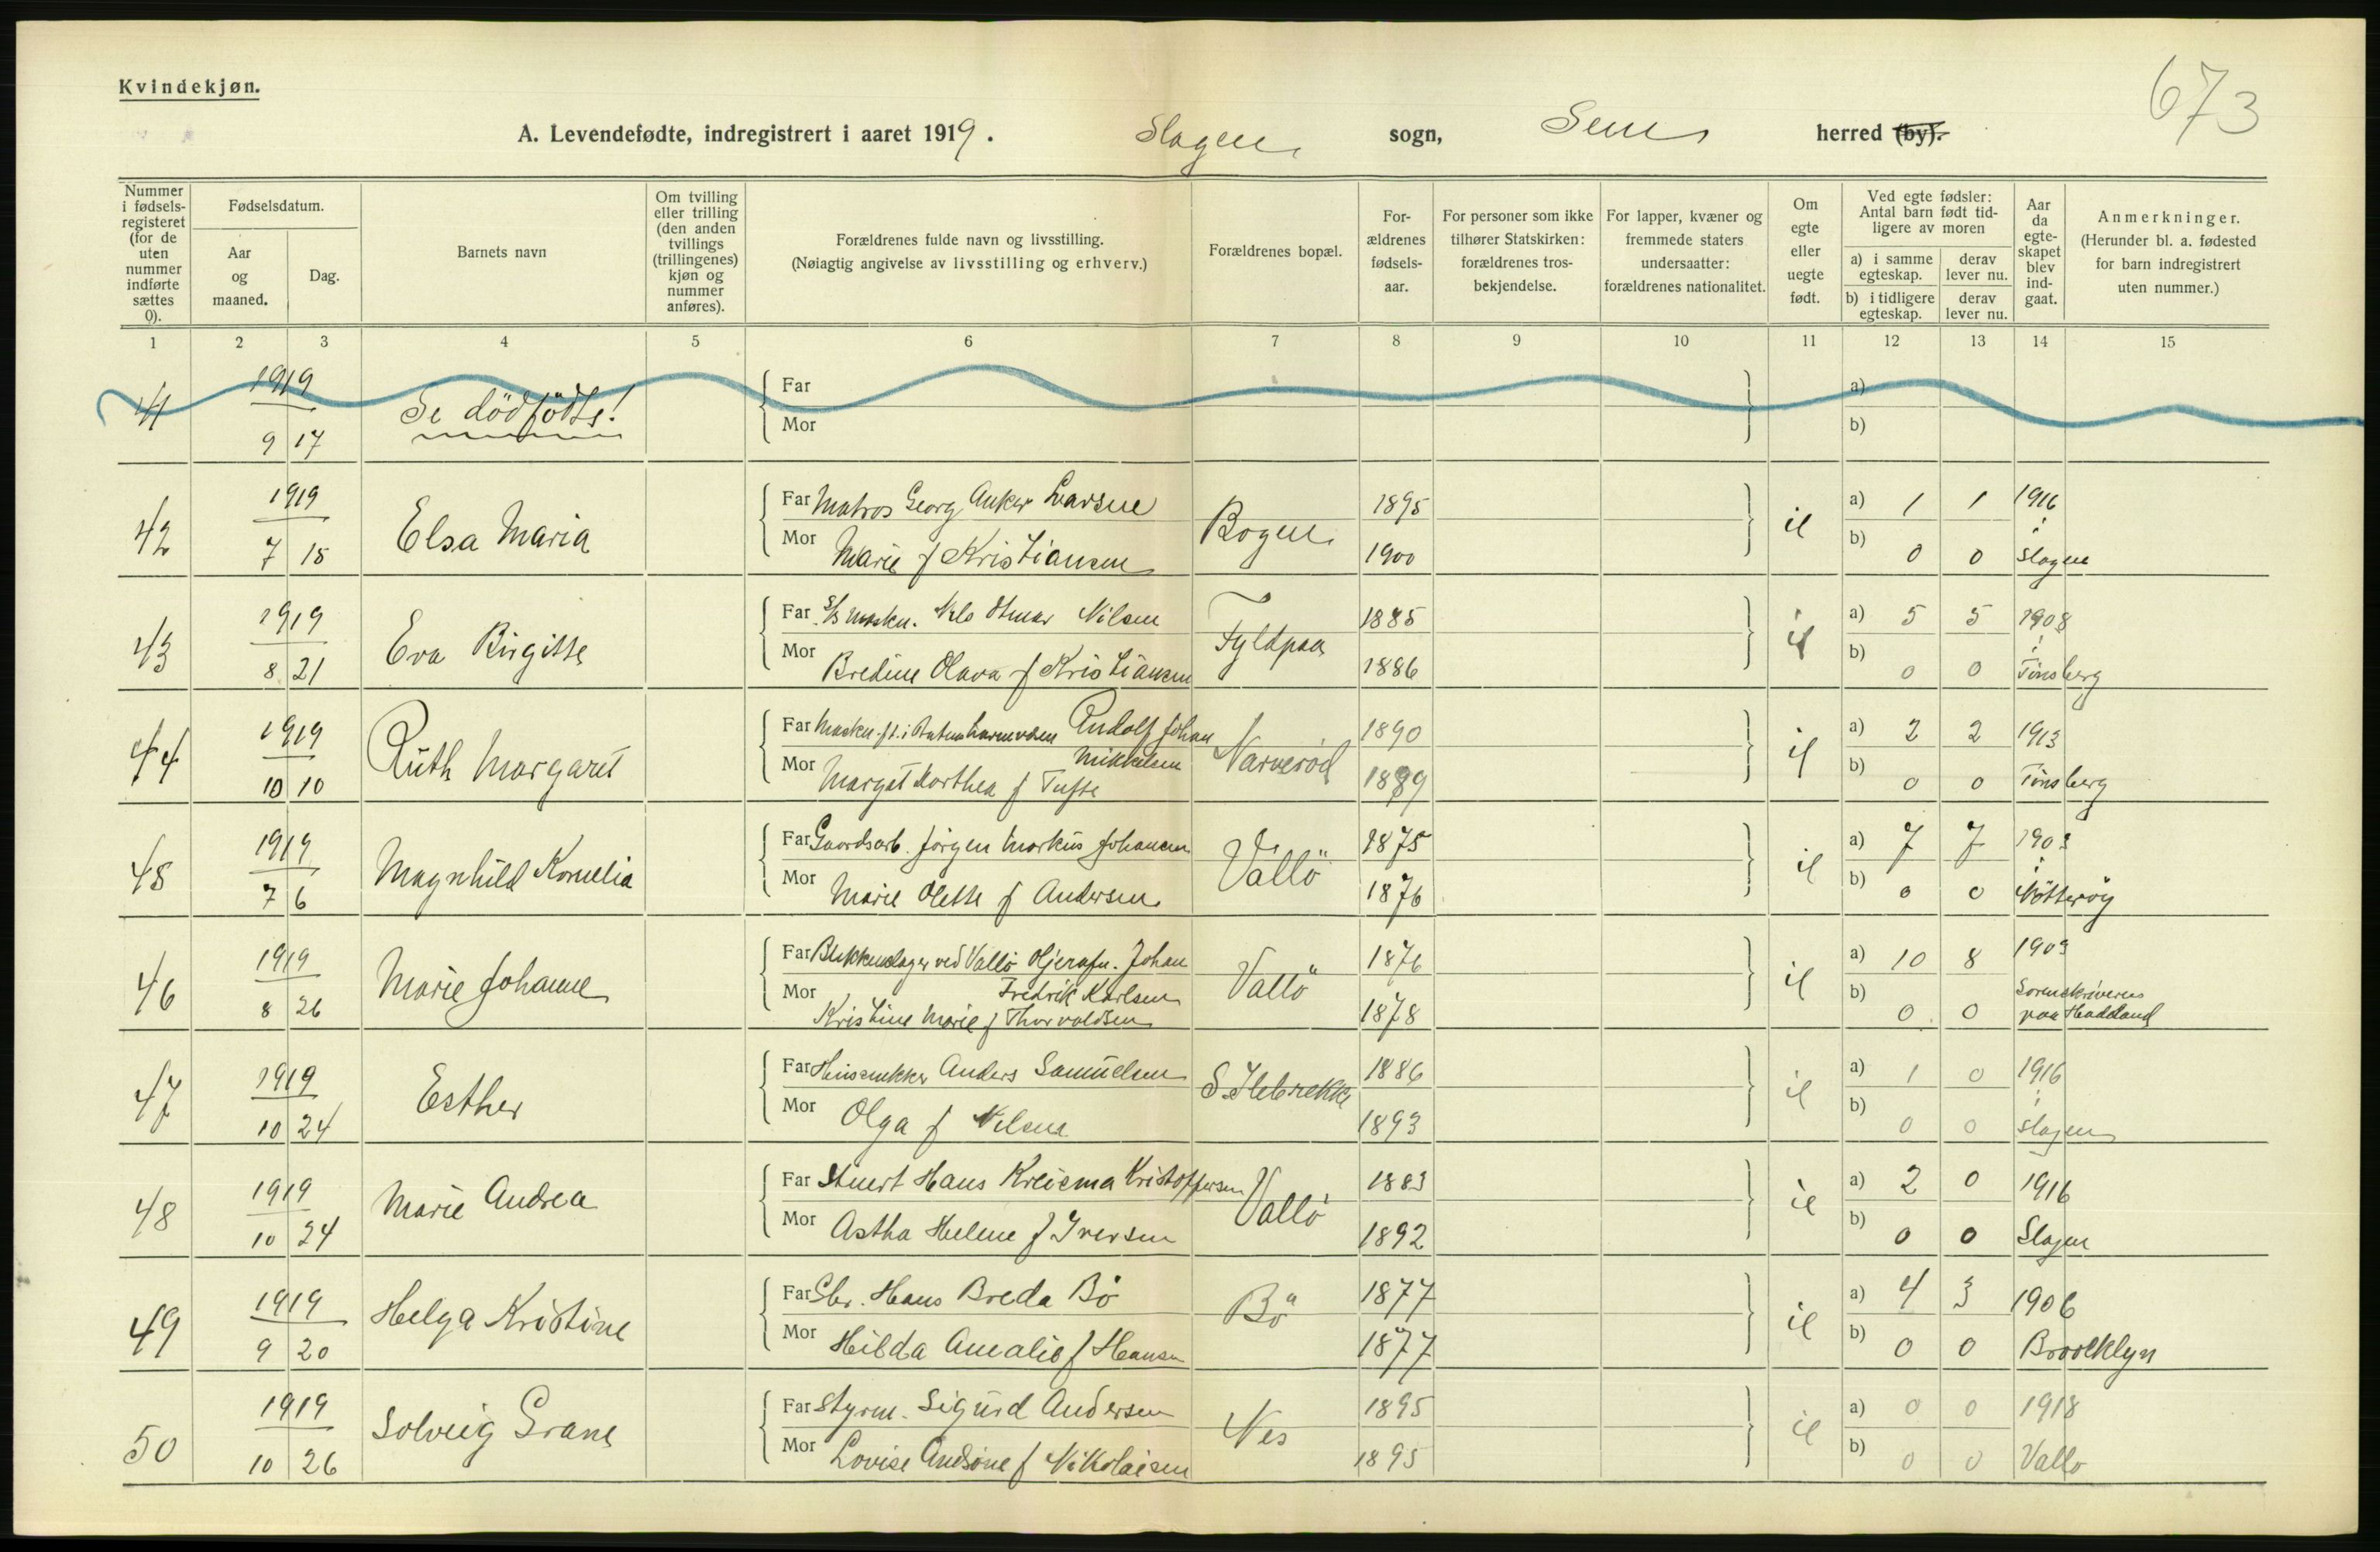 Kvindekjøn.
673
A. Levendefødte, indregistrert i aaret 1919. Slagen sogn, Sem herred (by).
Nummer i fødsels-registeret (for de uten nummer indførte sættes 0).
Fødselsdatum.
Aar og maaned.
Dag.
Barnets navn
Om tvilling eller trilling (den anden tvillings (trillingenes) kjøn og nummer anføres).
Forældrenes fulde navn og livsstilling.
(Nøiagtig angivelse av livsstilling og erhverv.)
Forældrenes bopæl.
For-ældrenes fødsels-aar.
For personer som ikke tilhører Statskirken: forældrenes tros-bekjendelse.
For lapper, kvæner og fremmede staters undersaatter: forældrenes nationalitet.
Om egte eller uegte født.
Ved egte fødsler: Antal barn født tid-ligere av moren
a) i samme egteskap.
derav lever nu.
b) i tidligere egteskap.
derav lever nu.
Aar da egte-skapet blev ind-gaat.
Anmerkninger.
(Herunder bl. a. fødested for barn indregistrert uten nummer.)
1 2 3 4 5 6 7 8 9 10 11 12 13 14 15
41 1919 9 17 Se dødfødte! Far
Mor
a)
b)
42 1919 7 15 Elsa Maria
Far Matros Georg Anker Larsen Bogen 1895 a) 1 1 1916
Mor Marie f Kristiansen 1900 b) 0 0 i Slagen
43 1919 8 21 Eva Birgitte
Far Nils Otmar Nilsen 1885 a) 5 5 1908
Mor Bredine Olava f Kristiansen 1886 b) 0 0 i Tønsberg
44 1919 10 10 Ruth Margaret
Far Rudolf Johan Mikkelsen Narverød 1890 a) 2 2 1913
Mor Margat Dorthea f Tufte 1889 b) 0 0 Tönsberg
45 1919 7 6 Magnhild Kornelia
Far Gaardsarb. Jörgen Markus Johansen Vallö 1875 a) 7 7
Mor Marie Olette f Andersen 1876 b) 0 0 Nötteröy
46 1919 8 26 Marie Johanne
Far Blikkenslager ved Vallö Oljeraf. Johan Fredrik Karlsen Vallö 1876 a) 10 8 1903
Mor Kristine Marie f Thorvaldsen 1878 b) 0 0 Sorenskriveren paa Hadeland
47 1919 10 24 Esther
Far Anders Samuelsen S. Ilebrekke 1886 a) 1 0 1916
Mor Olga f Nilsen 1893 b) 0 0 i Slagen
48 1919 10 24 Marie Andrea
Far Stuert Hans Kristoffersen Vallö 1883 a) 2 0 1916
Mor Astha Helene f Iversen 1892 b) 0 0 Slagen
49 1919 9 20 Helga Kristine
Far Gbr. Hans Breda Bö Bö 1877 a) 4 3 1906
Mor Hilda Amalie f Hansen 1877 b) 0 0 Brooklyn
50 1919 10 26 Solveig Grane
Far Styrm. Sigurd Andersen Nes 1895 a) 0 0 1918
Mor Lovise Andrine f Nikolaisen 1895 b) 0 0 Vallo